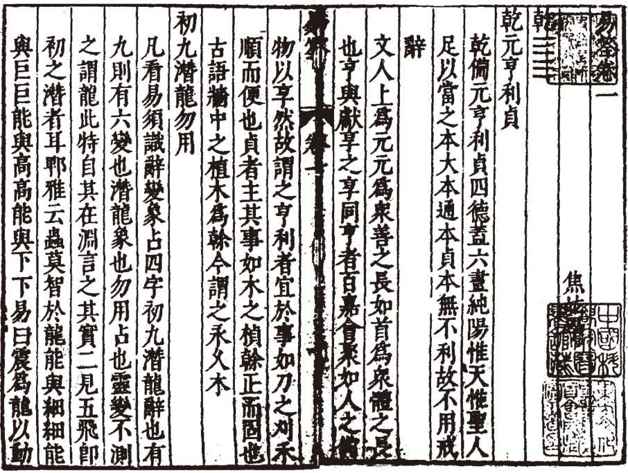 易筌卷一
焦竑
乾
乾元亨利貞
乾備元亨利貞四德蓋六畫純陽惟天惟聖人
足以當之本大本通本貞本無不利故不用戒
辭
文人上爲元元爲衆善之長如首爲衆體之長
也亨與獻享之享同亨者百嘉會聚如人之
物以享然故謂之亨利者宜於事如刀之刈禾
順而便也貞者主其事如木之楨榦正而固也
古語牆中之植木爲榦今謂之永乆木
初九潛龍勿用
凡看易須識辭變象占四字初九潛龍辭也有
九則有六變也潛龍象也勿用占也靈變不測
之謂龍此特自其在淵言之其實二見五飛卽
初之潛者耳鄲雅云蟲莫智於龍龍能與細細能
與巨巨能與高高能與下下易曰震爲龍以動